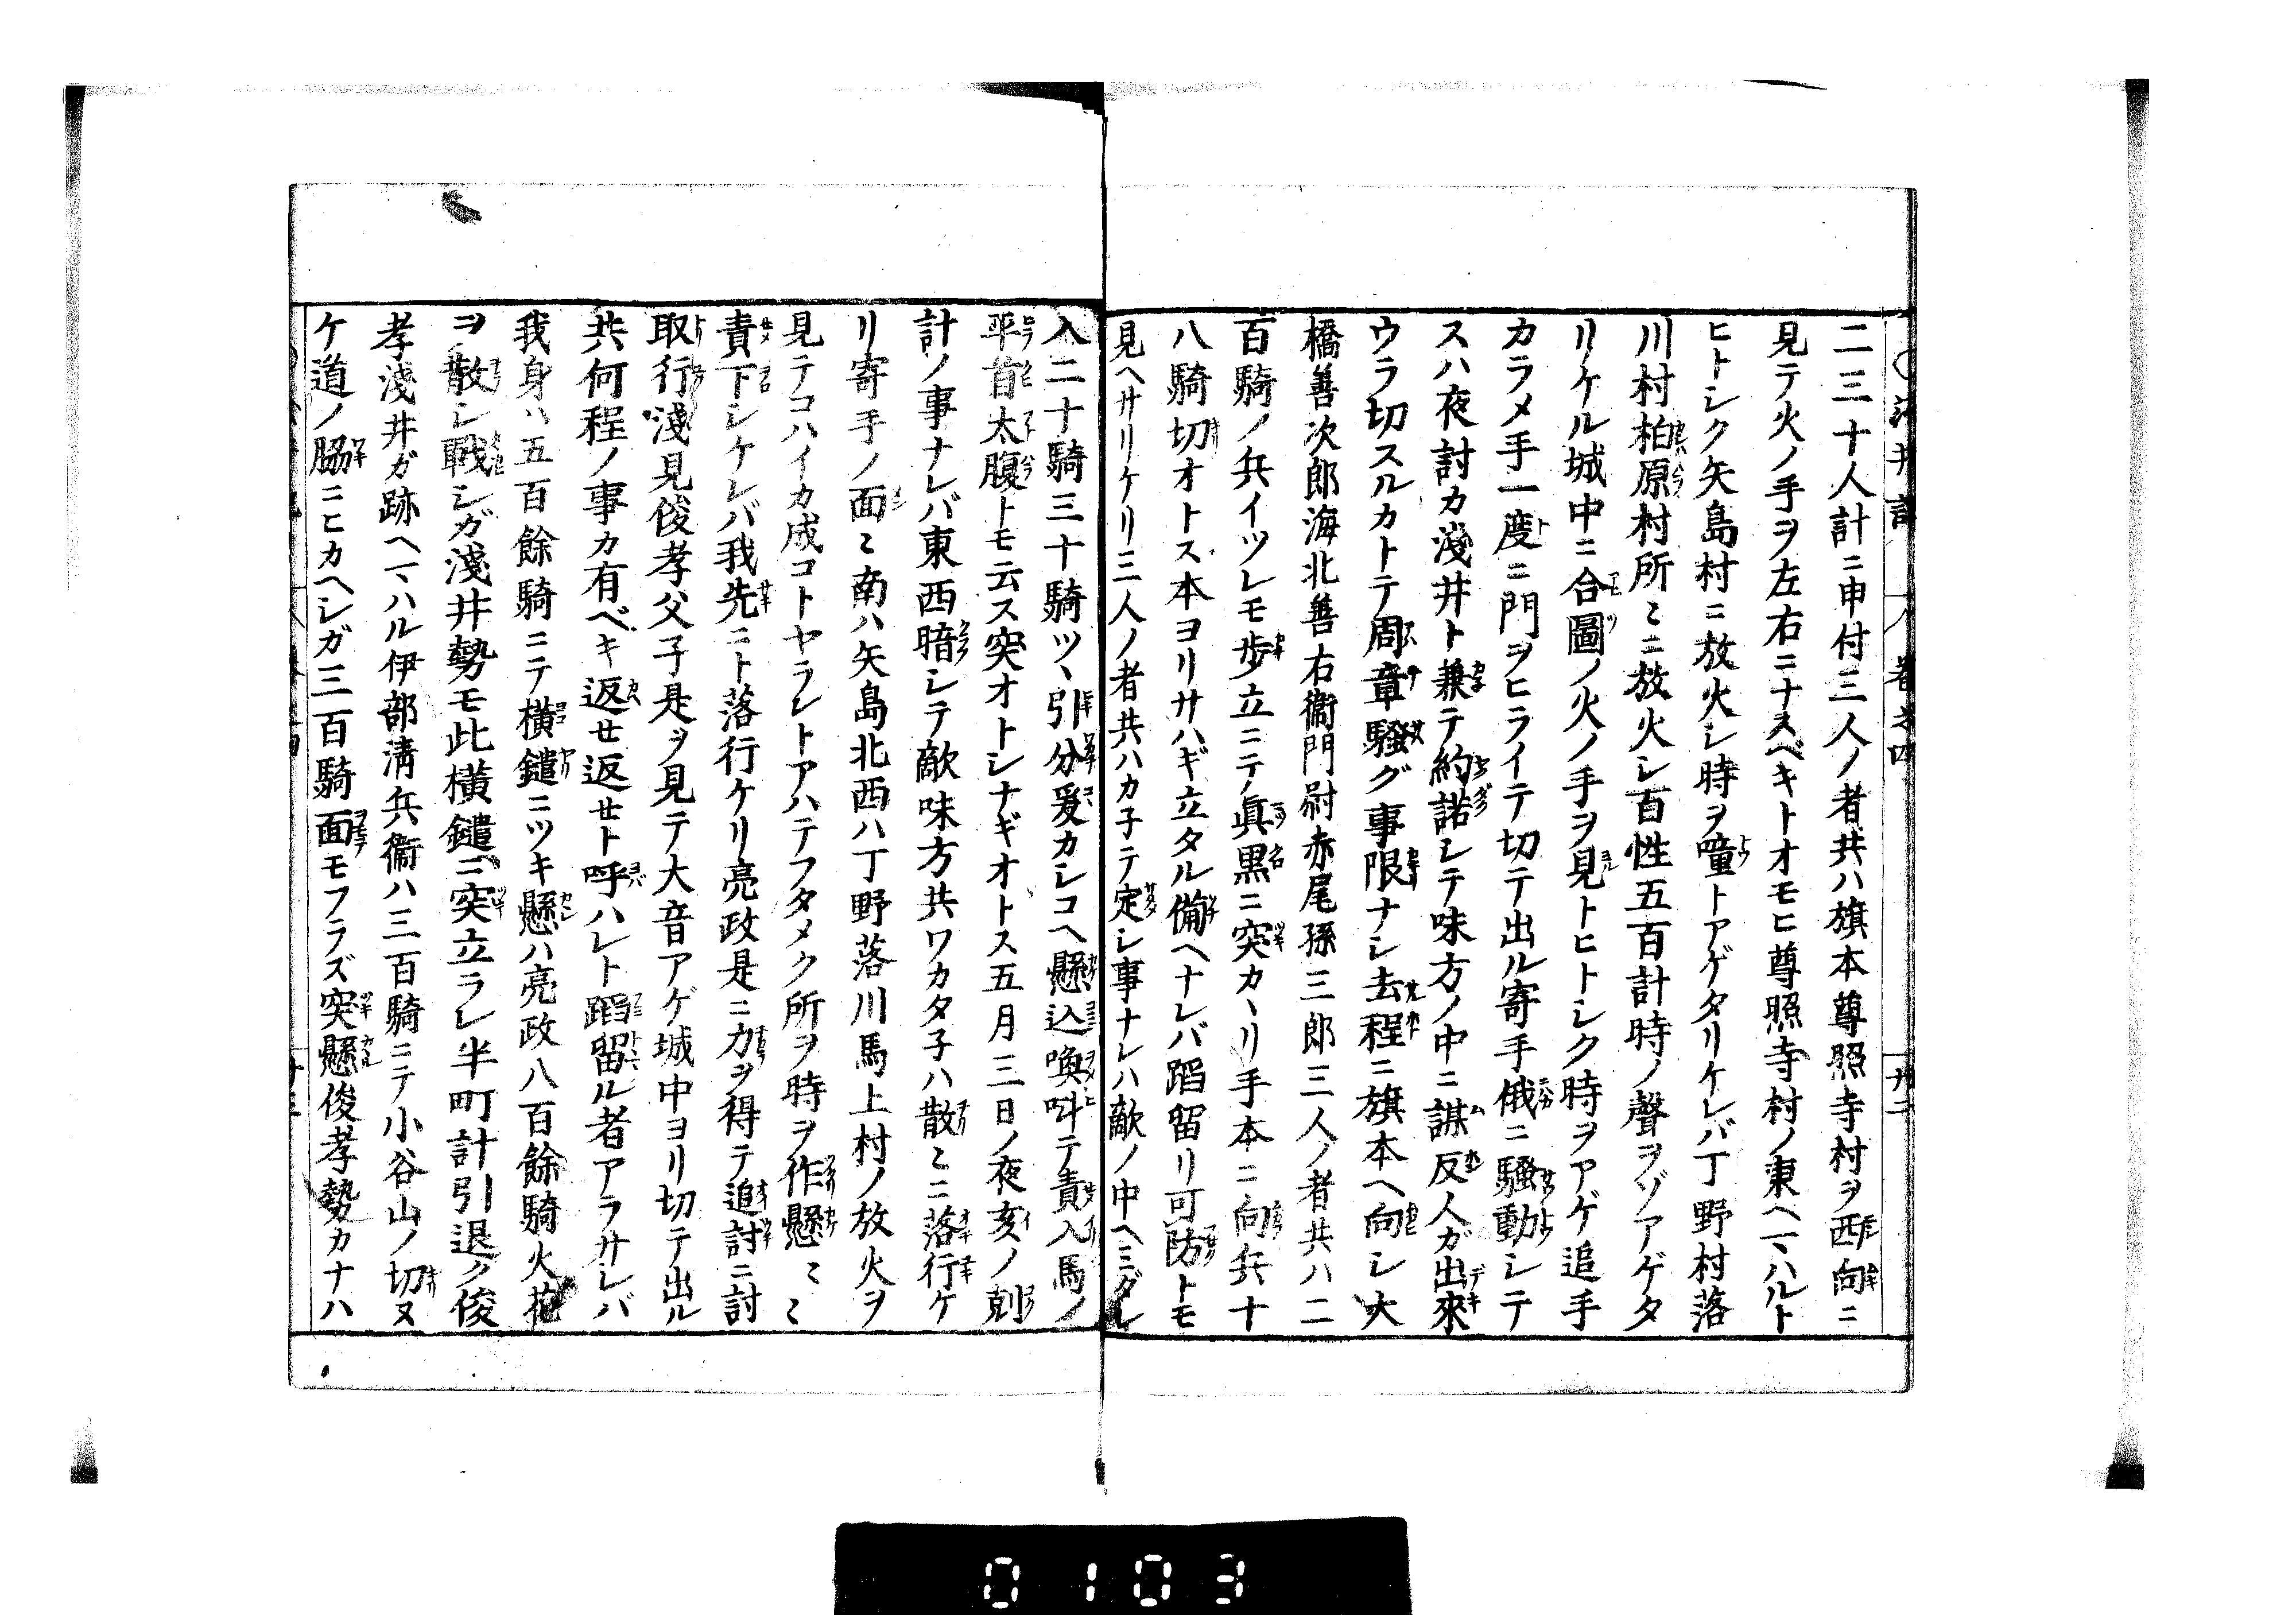 二三十人計ニ申付三人ノ者共ハ旗本尊照寺村ヲ西向ニ
見テ火ノ手ヲ左右ニナスベキトオモヒ尊照寺村ノ東ヘマハルト
ヒトシク矢島村ニ放火シ時ヲ噇トアゲタリケレバ丁野村落
川村柏原村所〻ニ放火シ百性五百計時ノ聲ヲゾアゲタ
リケル城中ニ合圖ノ火ノ手ヲ見トヒトシク時ヲアゲ追手
カラメ手一度ニ門ヲヒライテ切テ出ル寄手俄ニ騷動シテ
スハ夜討カ淺井ト兼テ約諾シテ味方ノ中ニ謀反人ガ出來
ウラ切スルカトテ周章騷グ事限ナシ去程ニ旗本ヘ向シ大
橋善次郎海北善右衞門尉赤尾孫三郎三人ノ者共ハ二
百騎ノ兵イツレモ歩立ニテ眞黒ニ突カヽリ手本ニ向兵十
八騎切オトス本ヨリサハギ立タル備ヘナレバ蹈留リ可防トモ
見ヘサリケリ三人ノ者共ハカ子テ定シ事ナレハ敵ノ中ヘミダレ
入二十騎三十騎ツヽ引分爰カシコヘ懸込喚叫テ責入馬ノ
平首太腹トモ云ス突オトシナギオトス五月三日ノ夜亥ノ刻
計ノ事ナレバ東西暗シテ敵味方共ワカタ子ハ散〻ニ落行ケ
リ寄手ノ面〻南ハ矢島北西ハ丁野落川馬上村ノ放火ヲ
見テコハイカ成コトヤラレトアハテフタメク所ヲ時ヲ作懸〻〻
責下シケレバ我先ニト落行ケリ亮政是ニ力ヲ得テ追討ニ討
取行淺見俊孝父子是ヲ見テ大音アゲ城中ヨリ切テ出ル
共何程ノ事カ有ベキ返セ返セト呼ハレト蹈留ル者アラサレバ
我身ハ五百餘騎ニテ橫鑓ニツキ懸ハ亮政八百餘騎火花
ヲ散シ戰シガ淺井勢モ此橫鑓ニ突立ラレ半町計引退ク俊
孝淺井ガ跡ヘマハル伊部淸兵衞ハ三百騎ニテ小谷山ノ切ヌ
ケ道ノ脇ニヒカヘシガ三百騎面モフラズ突懸俊孝勢カナハ
0103